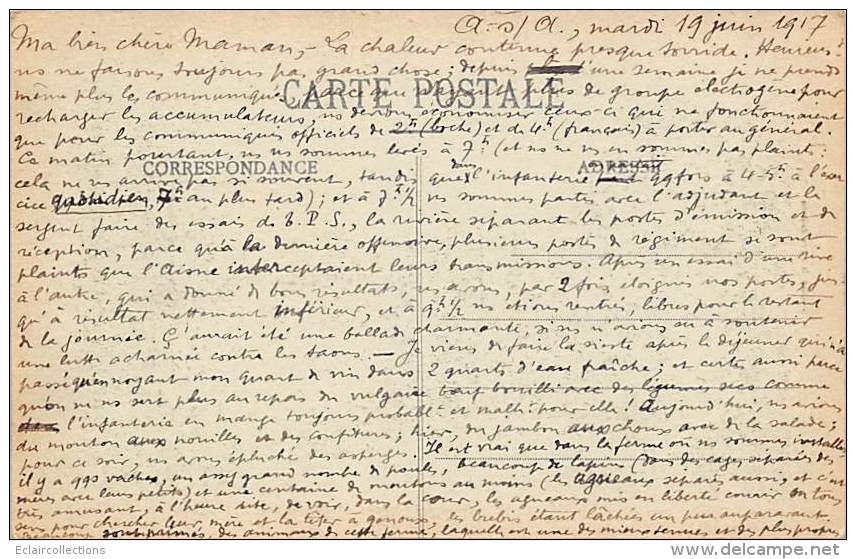 A. s/ A., mardi 19 juin 1917
Ma bien chère Maman, - La chaleur continue presque torride. Heureus.t
ns ne faisons toujours pas grand chose; depuis d'une semaine je ne prends
même plus les communiqués parce que n'ayant plus de groupe électrogène pour
CARTE POSTALE
recharger les accumulateurs, ns devons économiser ceux-ci qui ne fonctionnaient
que pour les communiqués officiels de 2h (boche) et de 4h (français) à porter au général.
Ce matin pourtant, ns ns sommes levés à 7h (et ns ne ns en sommes pas plaints:
CORRESPONDANCE ADRESSE
cela ne ns arrive pas si souvent tandis que ds l'infanterie qqfois à 4-5h à l'exer
cice quotidien, 7h au plus tard); et à 7h1/2 ns sommes partis avec l'adjudant et le
sergent faire des essais de T.P.S., la rivière séparant les postes d'émission et de
réception, parce qu'à la dernière offensive, plusieurs postes de régiment se sont
plaints que l'Aisne interceptaient leurs transmissions. Après un essai d'une rive
à l'autre, qui a donné de bons résultats, ns avons, par 2 fois éloigné nos postes, jus-
qu'à résultat nettement inférieur, et à 9h1/2 ns étions rentrés, libres pour le restant
de la journée. Ç'aurait été une ballade charmante, si ns n'avions eu à soutenir
une lutte acharnée contre les taons. - Je viens de faire la sieste après le déjeuner qui n'a
passé qu'en noyant mon quart de vin dans 2 quarts d'eau fraîche; et certes aussi parce
qu'on ne ns sert plus au repas du vulgaire bœuf bouilli avec des légumes secs comme
l'infanterie en mange toujours probabl.t et malh.t pour elle! Aujourd'hui, ns avions
du mouton aux nouilles et des confitures; hier, du jambon aux choux avec de la salade;
pour ce soir, ns avons épluché des asperges. Il est vrai que dans la ferme où ns sommes installés
il y a qqs vaches, un assez grand nombre de poules, beaucoup de lapins (dans des cages, séparées des
mères avec leurs petits) et une centaine de moutons au moins (les agneaux séparés aussi, et c'est
très amusant, à l'heure dite, de voir, dans la cour, les agneaux mis en liberté courir en tous
sens pour chercher leur mère et la téter à genoux, les brebis étant lâchées un peu auparavant
Beaucoup des animaux de cette ferme, laquelle est une des mieux tenues et des plus propres
Eclaircollections
delcampe.net